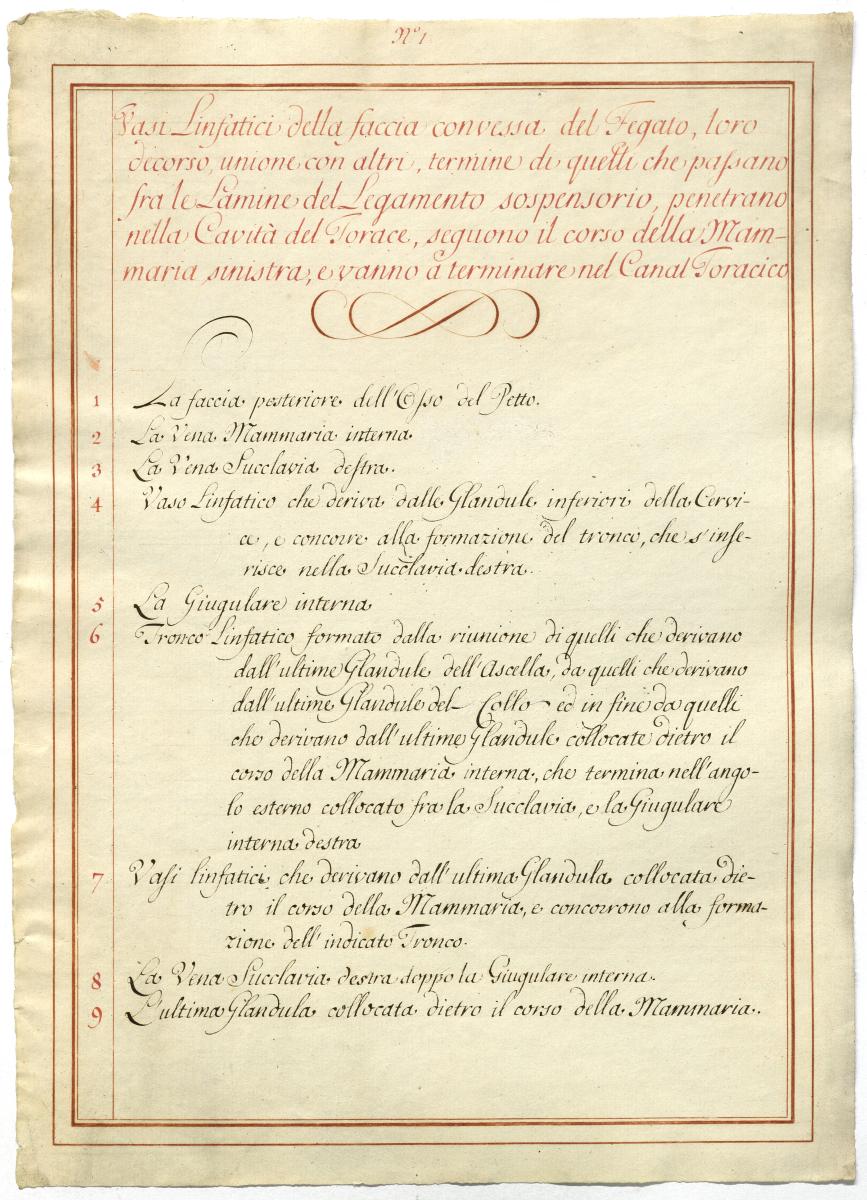 N.º 1
Vasi Linfatici della faccia convessa del Fegato, loro
decorso, unione con altri, termine di quelli che passano
fra le Lamine del Legamento sospensorio, penetrano
nella Cavità del Torace, seguono il corso della Mam-
maria sinistra, e vanno à terminare nel Canal Toracico
1 La faccia posteriore dell'Osso del Petto.
2 La Vena Mammaria interna
3 La Vena Succlavia destra.
4 Vaso Linfatico che deriva dalle Glandule inferiori della Cervi-
ce, e concorre alla formazione del tronco, che s'inse-
risce nella Succlavia destra.
5 La Giugulare interna
6 Tronco Linfatico formato dalla riunione di quelli che derivano
dall'ultime Glandule dell'Ascella, da quelli che derivano
dall'ultime Glandule del Collo ed in fine da quelli
che derivano dall'ultime Glandule collocate dietro il
corso della Mammaria interna, che termina nell'ango-
lo esterno collocato fra la Succlavia, e la Giugulare
interna destra
7 Vasi linfatici che derivano dall'ultima Glandula collocata die-
tro il corso della Mammaria, e concorrono alla forma-
zione dell'indicato Tronco.
8 La Vena Succlavia destra doppo la Giugulare interna.
9 L'ultima Glandula collocata dietro il corso della Mammaria.